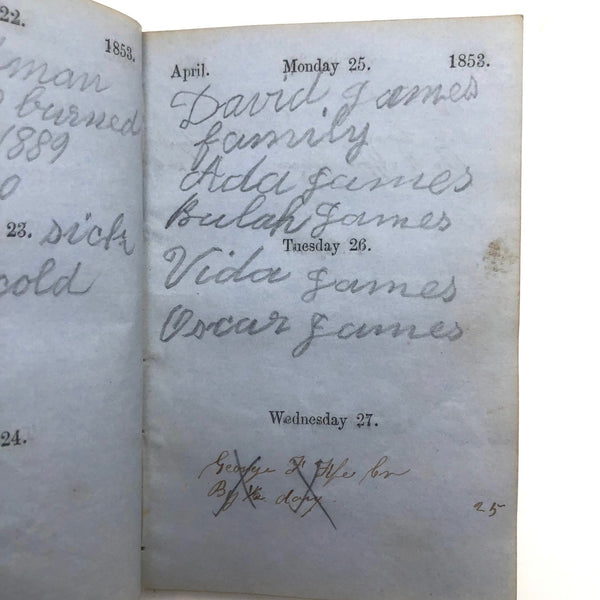 22.
1853.
man
burned
1889
0
23. sick
cold
24.
April. Monday 25. 1853.
David James
family
Ada James
Bulah James
Tuesday 26.
Vida James
Oscar James
Wednesday 27.
George F
By 1/2 day 25